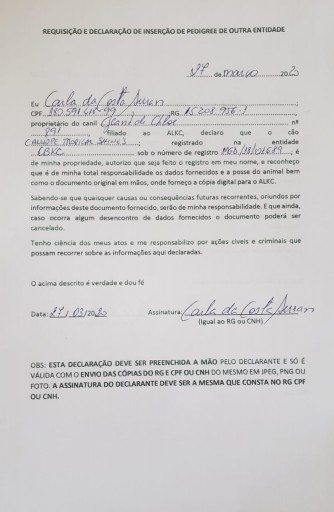 REQUISIÇÃO E DECLARAÇÃO DE INSERÇÃO DE PEDIGREE DE OUTRA ENTIDADE
27 de março 2020
Eu Carla da Costa
CPF RG
proprietário do canil nº
891, filiado ao ALKC, declaro que o cão
registrado na entidade
sob o número de registro
é de minha propriedade, autorizo que seja feito o registro em meu nome, e reconheço
que é de minha total responsabilidade os dados fornecidos e a posse do animal bem
como o documento original em mãos, onde forneço a cópia digital para o ALKC.
Sabendo-se que quaisquer causas ou consequências futuras recorrentes, oriundos por
informações deste documento fornecido, serão de minha responsabilidade. E que ainda,
caso ocorra algum desencontro de dados fornecidos o documento poderá ser
cancelado.
Tenho ciência dos meus atos e me responsabilizo por ações cíveis e criminais que
possam recorrer sobre as informações aqui declaradas.
O acima descrito é verdade e dou fé
Data: 27/03/2020 Assinatura: Carla da Costa
(Igual ao RG ou CNH)
OBS: ESTA DECLARAÇÃO DEVE SER PREENCHIDA A MÃO PELO DECLARANTE E SÓ É
VÁLIDA COM O ENVIO DAS CÓPIAS DO RG E CPF OU CNH DO MESMO EM JPEG, PNG OU
FOTO. A ASSINATURA DO DECLARANTE DEVE SER A MESMA QUE CONSTA NO RG CPF
OU CNH.